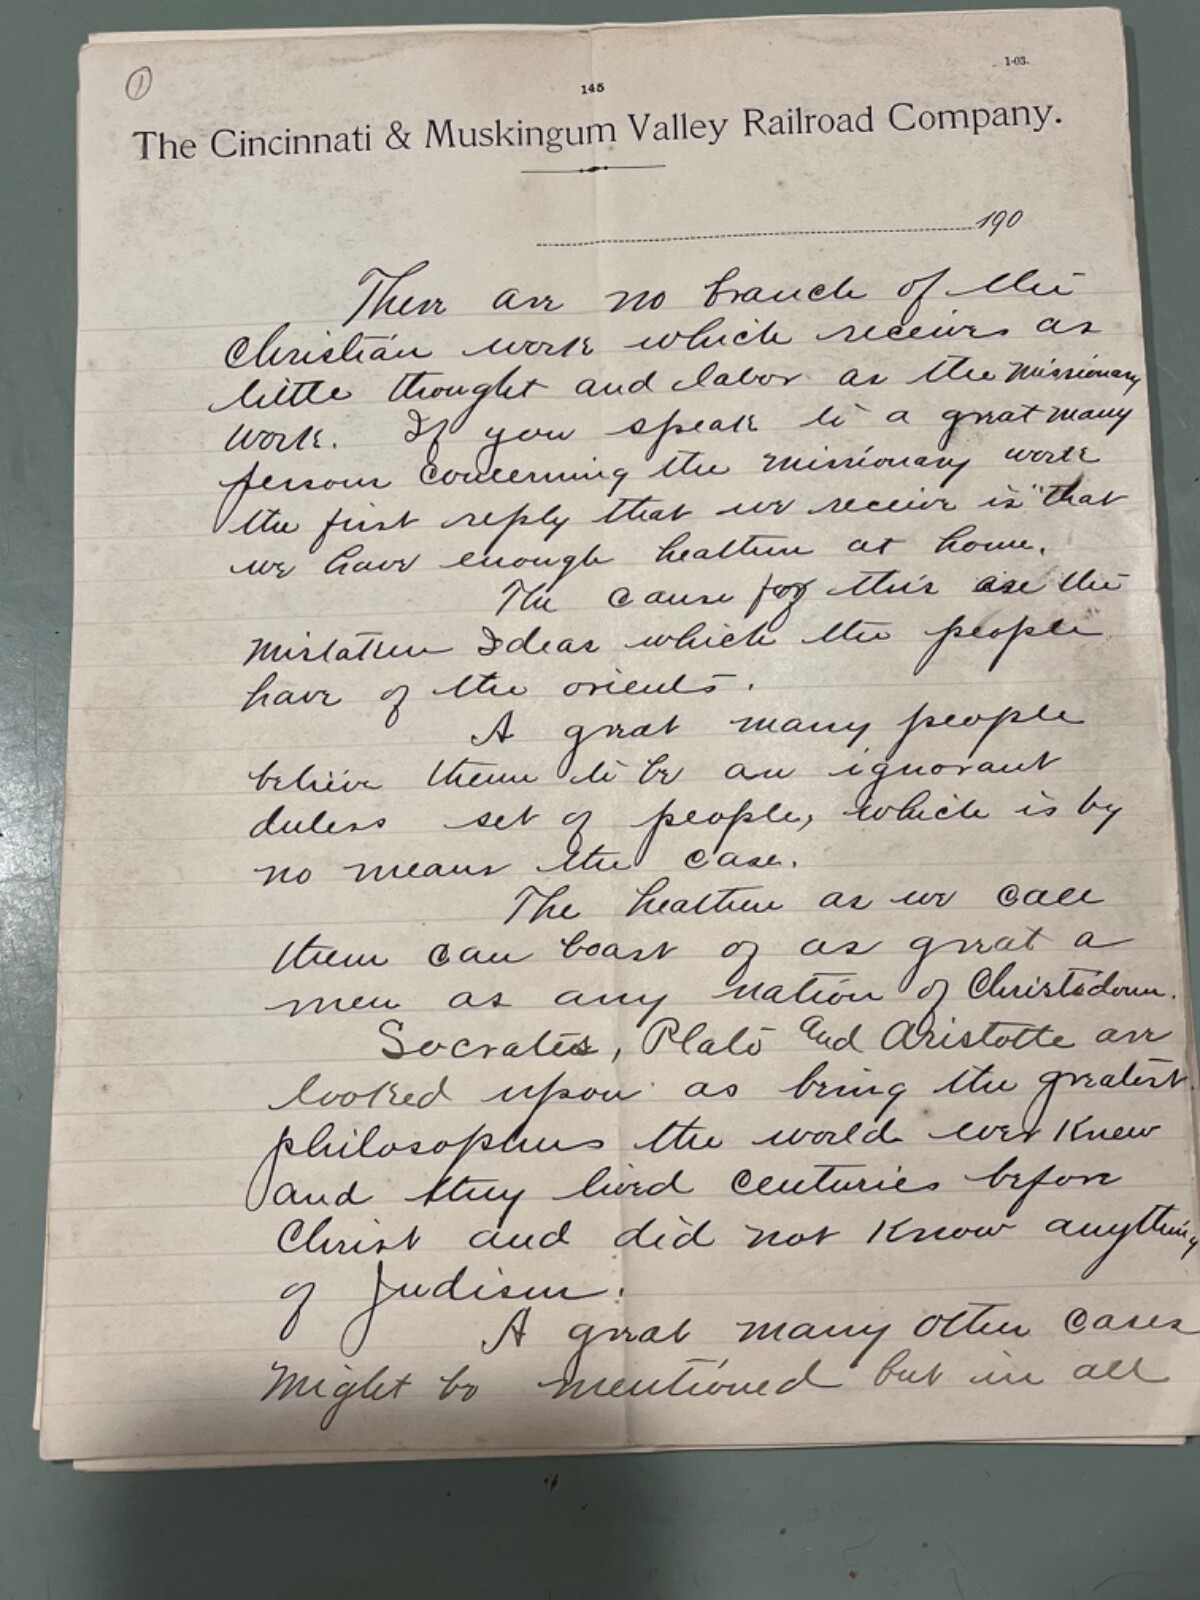 ①
1-03.
145
The Cincinnati & Muskingum Valley Railroad Company.
190
Ther are no branch of the
Christian work which receives as
little thought and labor as the missionary
work. If you speak to a great many
persons concerning the missionary work
the first reply that we receive is "that
we have enough heathen at home.
The cause for this are the
mistaken Ideas which the people
have of the orients.
A great many people
believe them to be an ignorant
duless set of people, which is by
no means the case.
The heathen as we call
them can boast of as great a
men as any nation of Christadom.
Socrates, Plato and Aristotle are
looked upon as being the greatest
philosophers the world ever knew
and they lived centuries before
Christ and did not know anything
of Judism.
A great many other cases
might be mentioned but in all